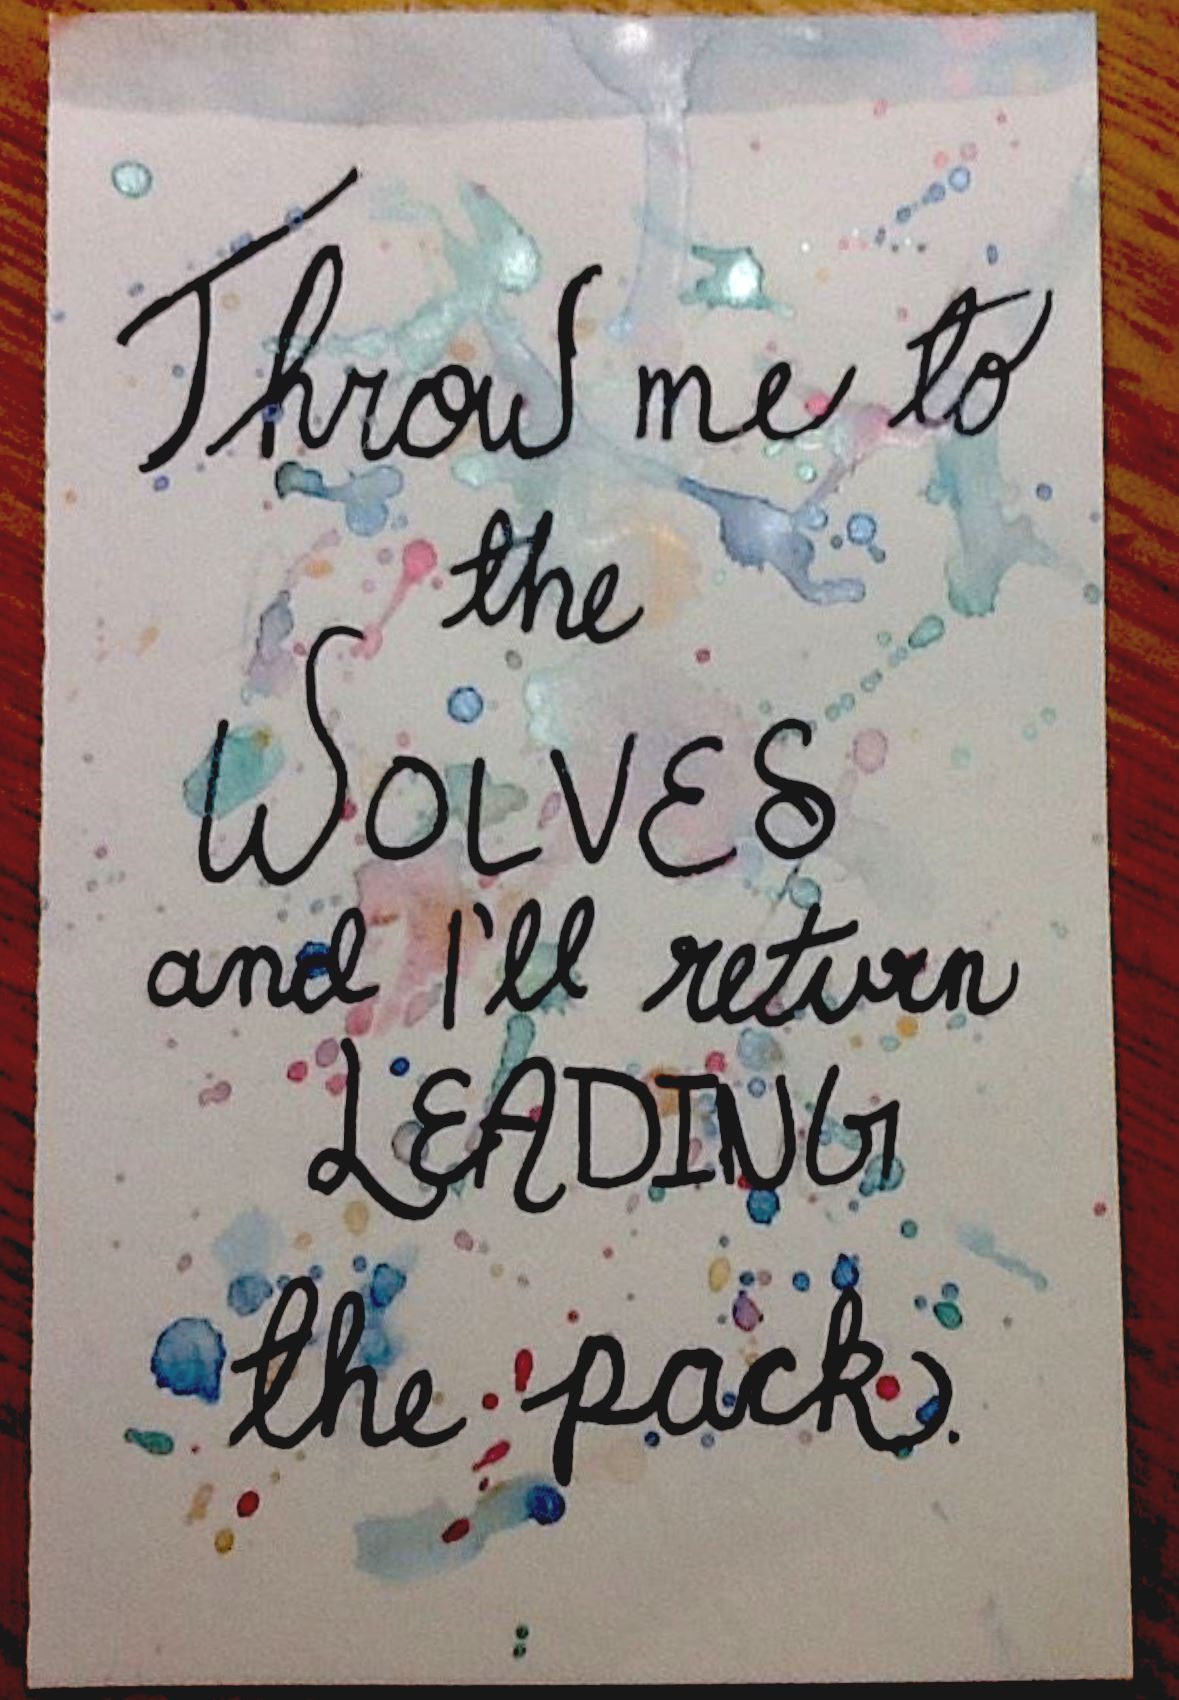 Throw me to
the
WOLVES
and I'll return
LEADING
the pack.